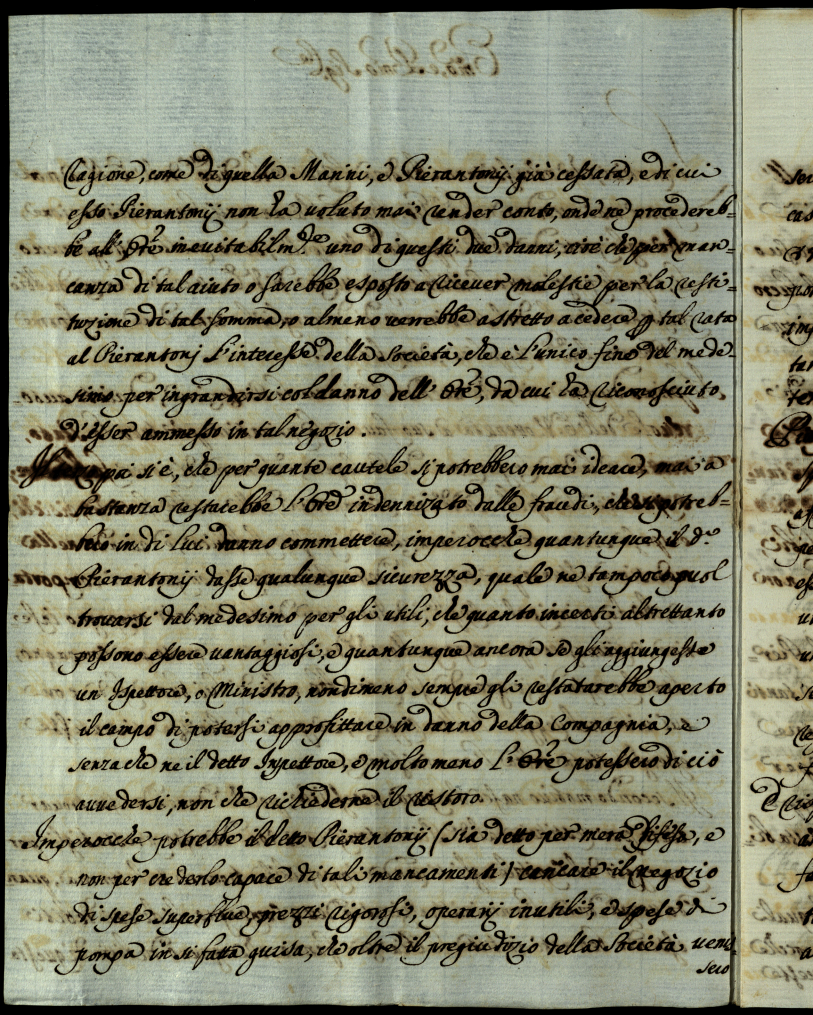 Cagione, come di quella Marini, e Pierantonij già cessata, e di cui
esso Pierantonij non ha voluto mai render conto, onde ne procedereb=
be all' Ore inevitabilmte uno di questi due danni, cioè che per man=
canza di tal aiuto o sarebbe esposto a ricever molestie per la resti=
tuzione di tal somma, o almeno verrebbe astretto a cedere p tal rata
al Pierantonj l'interesse della Società, che è l'unico fine del mede=
simo per ingrandirsi col danno dell' Ore, da cui ha riconosciuto
d'esser ammesso in tal negozio.
poi si è, che per quante cautele si potrebbero mai ideare, mai a
bastanza restarebbe l'Ore indennizato dalle fraudi, che si potreb=
bero in di lui danno commettere, imperocche quantunque il do
Pierantonij dasse qualunque sicurezza, quale ne tampoco puol
trovarsi dal medesimo per gli utili, che quanto incerti altrettanto
possono essere vantaggiosi, e quantunque ancora se gli aggiungesse
un Ispettore, o Ministro, nondimeno sempre gli restarebbe aperto
il campo di potersi approfittare in danno della Compagnia, e
senza che ne il detto Inspettore, e molto mano l'Ore potessero di ciò
avvedersi, non che richiederne il ristoro.
Imperocche potrebbe il detto Pierantonij (sia detto per mera difesa, e
non per crederlo capace di tali mancamenti) caricare il negozio
di spese superflue, prezzi rigorosi, operarij inutili, e spese di
pompa in si fatta guisa, che oltre il pregiudizio della Società venis=
sero